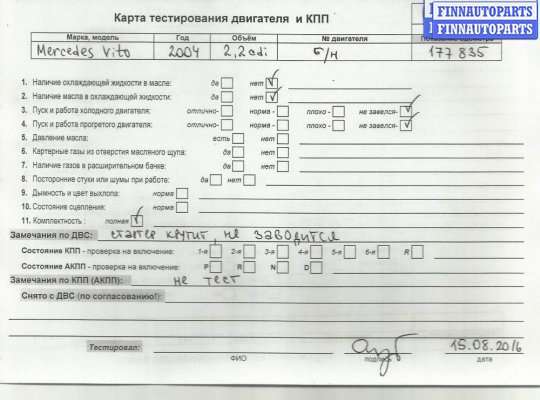 FINNAUTOPARTS
FINNAUTOPARTS
Карта тестирования двигателя и КПП
Марка, модель Год Объём № двигателя
Mercedes Vito 2004 2,2cdi б/н 177835
1. Наличие охлаждающей жидкости в масле: да нет
2. Наличие масла в охлаждающей жидкости: да нет
3. Пуск и работа холодного двигателя: отлично- норма - плохо - не завелся-
4. Пуск и работа прогретого двигателя: отлично- норма - плохо - не завелся-
5. Давление масла: есть нет
6. Картерные газы из отверстия масляного щупа: да нет
7. Наличие газов в расширительном бачке: да нет
8. Посторонние стуки или шумы при работе: да нет
9. Дымность и цвет выхлопа: норма
10. Состояние сцепления: норма
11. Комплектность : полная
Замечания по ДВС: стартер крутит, не заводится
Состояние КПП - проверка на включение: 1-я 2-я 3-я 4-я 5-я 6-я R
Состояние АКПП - проверка на включение: P R N D
Замечания по КПП (АКПП): не тест
Снято с ДВС (по согласованию!):
Тестировал: 15.08.2016
ФИО подпись дата